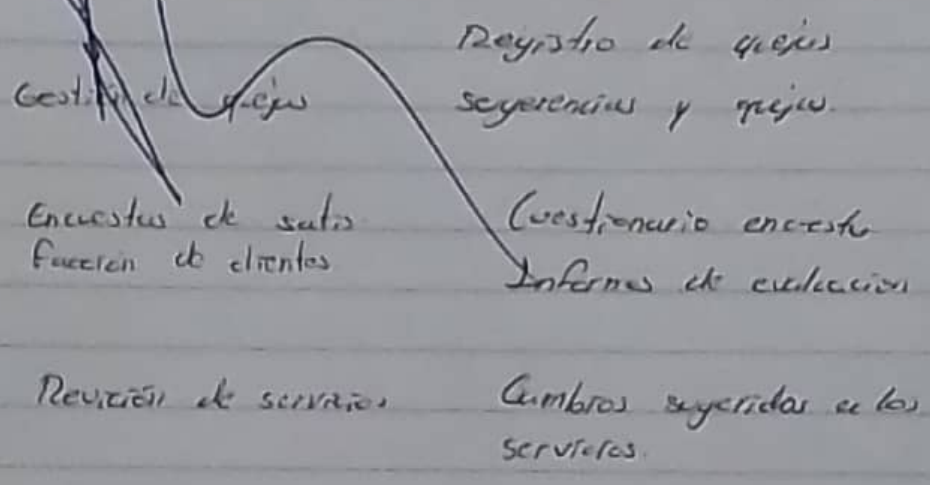 Gestión de quejas
Registro de quejas
sugerencias y quejas.
Encuestas de satis
facción de clientes
Cuestionario encuesta
Informes de evaluación
Revición de servicios
Cambios sugeridos a los
servicios.